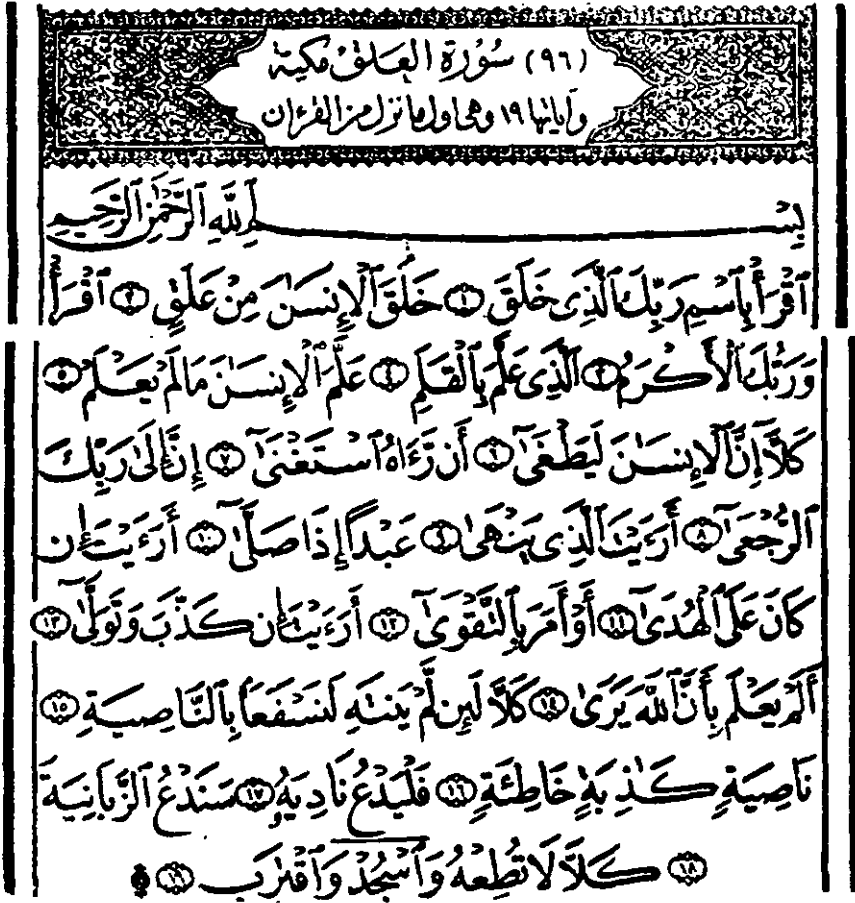 (٩٦) سُورَةِ العَلَق مَكيَّة
وَآيَاتُهَا ١٩ وَهِيَ أول مَا نَزَلَ مِنَ القُرْءَان
بِسْمِ ٱللَّهِ ٱلرَّحْمَٰنِ ٱلرَّحِيمِ
ٱقْرَأْ بِٱسْمِ رَبِّكَ ٱلَّذِى خَلَقَ ١ خَلَقَ ٱلْإِنسَٰنَ مِنْ عَلَقٍ ٢ ٱقْرَأْ
وَرَبُّكَ ٱلْأَكْرَمُ ٣ ٱلَّذِى عَلَّمَ بِٱلْقَلَمِ ٤ عَلَّمَ ٱلْإِنسَٰنَ مَا لَمْ يَعْلَمْ ٥
كَلَّآ إِنَّ ٱلْإِنسَٰنَ لَيَطْغَىٰٓ ٦ أَن رَّءَاهُ ٱسْتَغْنَىٰٓ ٧ إِنَّ إِلَىٰ رَبِّكَ
ٱلرُّجْعَىٰٓ ٨ أَرَءَيْتَ ٱلَّذِى يَنْهَىٰ ٩ عَبْدًا إِذَا صَلَّىٰٓ ١٠ أَرَءَيْتَ إِن
كَانَ عَلَى ٱلْهُدَىٰٓ ١١ أَوْ أَمَرَ بِٱلتَّقْوَىٰٓ ١٢ أَرَءَيْتَ إِن كَذَّبَ وَتَوَلَّىٰٓ ١٣
أَلَمْ يَعْلَم بِأَنَّ ٱللَّهَ يَرَىٰ ١٤ كَلَّا لَئِن لَّمْ يَنتَهِ لَنَسْفَعًۢا بِٱلنَّاصِيَةِ ١٥
نَاصِيَةٍ كَٰذِبَةٍ خَاطِئَةٍ ١٦ فَلْيَدْعُ نَادِيَهُۥ ١٧ سَنَدْعُ ٱلزَّبَانِيَةَ
١٨ كَلَّا لَا تُطِعْهُ وَٱسْجُدْ وَٱقْتَرِب ١٩